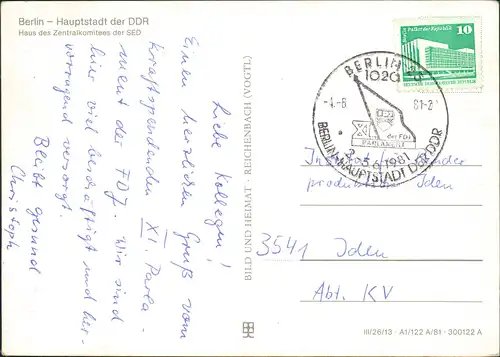 Berlin – Hauptstadt der DDR
Haus des Zentralkomitees der SED
Liebe Kollegen!
Einen herzlichen Gruß vom
kraftspendenden XI. Parla-
ment der FDJ. Wir sind
hier viel beschäftigt und her-
vorragend versorgt.
Bleibt gesund
Christoph
BILD UND HEIMAT · REICHENBACH (VOGTL)
Berlin Palast der Republik
10
DEUTSCHE DEMOKRATISCHE REPUBLIK
BERLIN
1020
-4.-6
81-2
XI
der FDJ
PARLAMENT
2.-5.6.1981
BERLIN-HAUPTSTADT DER DDR
produktion Iden
3541 Iden
Abt. KV
III/26/13 · A1/122 A/81 · 300122 A